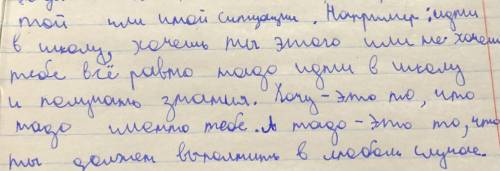 той или иной ситуации. Например: идти
в школу, хочешь ты этого или не хочешь
тебе всё равно надо идти в школу
и получать знания. Хочу - это то, что
надо именно тебе. А надо - это то, что
ты должен выполнить в любом случае.